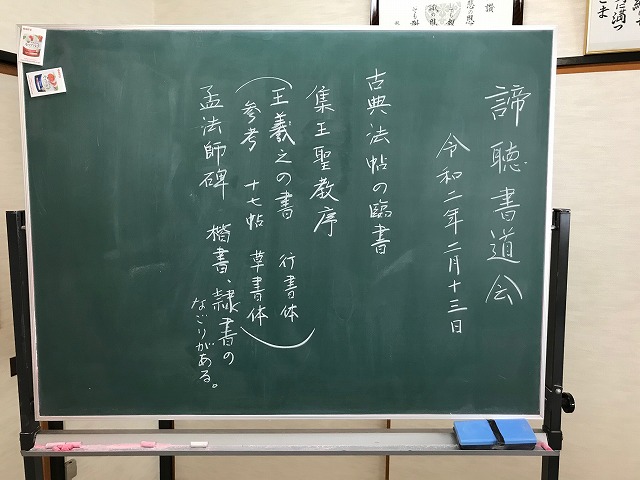 諦聴書道会
令和二年二月十三日
古典法帖の臨書
集王聖教序
(王羲之の書 行書体
参考 十七帖 草書体)
孟法師碑 楷書、隷書の
なごりがある。